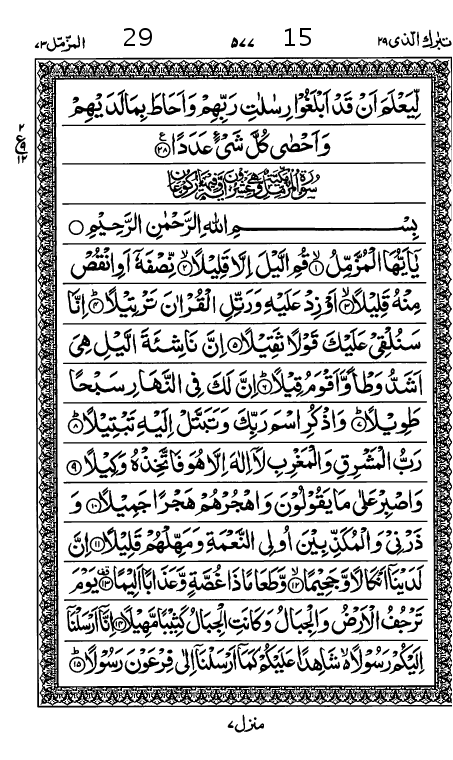 تبٰرك الّذی ٢٩ 15 ٥٧٧ 29 المزّمّل ٧٣
لِّيَعْلَمَ اَنْ قَدْ اَبْلَغُوْا رِسٰلٰتِ رَبِّهِمْ وَاَحَاطَ بِمَا لَدَيْهِمْ
وَاَحْصٰى كُلَّ شَىْءٍ عَدَدًا ۧ﴿٢٨﴾
٢
ع
٩
١٢
بِسْمِ اللهِ الرَّحْمٰنِ الرَّحِيْمِ ○
يٰۤاَيُّهَا الْمُزَّمِّلُ ﴿١﴾ قُمِ الَّيْلَ اِلَّا قَلِيْلًا ﴿٢﴾ نِّصْفَهٗۤ اَوِ انْقُصْ
مِنْهُ قَلِيْلًا ﴿٣﴾ اَوْ زِدْ عَلَيْهِ وَرَتِّلِ الْقُرْاٰنَ تَرْتِيْلًا ؕ﴿٤﴾ اِنَّا
سَنُلْقِىْ عَلَيْكَ قَوْلًا ثَقِيْلًا ﴿٥﴾ اِنَّ نَاشِئَةَ الَّيْلِ هِىَ
اَشَدُّ وَطْاً وَّاَقْوَمُ قِيْلًا ؕ﴿٦﴾ اِنَّ لَكَ فِى النَّهَارِ سَبْحًا
طَوِيْلًا ؕ﴿٧﴾ وَاذْكُرِ اسْمَ رَبِّكَ وَتَبَتَّلْ اِلَيْهِ تَبْتِيْلًا ؕ﴿٨﴾
رَبُّ الْمَشْرِقِ وَالْمَغْرِبِ لَاۤ اِلٰهَ اِلَّا هُوَ فَاتَّخِذْهُ وَكِيْلًا ﴿٩﴾
وَاصْبِرْ عَلٰى مَا يَقُوْلُوْنَ وَاهْجُرْهُمْ هَجْرًا جَمِيْلًا ﴿١٠﴾ وَ
ذَرْنِىْ وَالْمُكَذِّبِيْنَ اُولِى النَّعْمَةِ وَمَهِّلْهُمْ قَلِيْلًا ﴿١١﴾ اِنَّ
لَدَيْنَاۤ اَنْكَالًا وَّجَحِيْمًا ﴿١٢﴾ وَّطَعَامًا ذَا غُصَّةٍ وَّعَذَابًا اَلِيْمًا ﴿١٣﴾ يَوْمَ
تَرْجُفُ الْاَرْضُ وَالْجِبَالُ وَكَانَتِ الْجِبَالُ كَثِيْبًا مَّهِيْلًا ﴿١٤﴾ اِنَّاۤ اَرْسَلْنَاۤ
اِلَيْكُمْ رَسُوْلًا ۬ۙ شَاهِدًا عَلَيْكُمْ كَمَاۤ اَرْسَلْنَاۤ اِلٰى فِرْعَوْنَ رَسُوْلًا ؕ﴿١٥﴾
منزل ٧